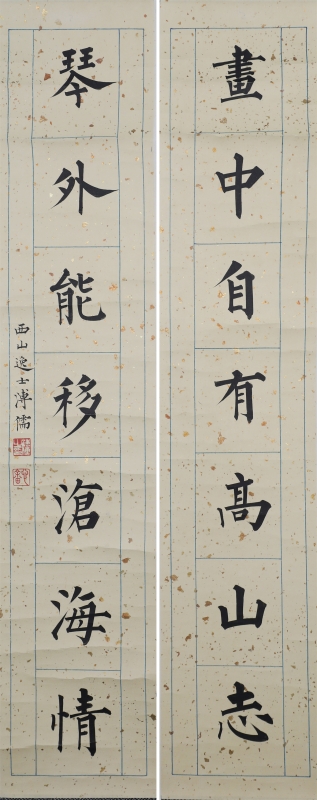 畫中自有高山志
琴外能移滄海情
西山逸士溥儒